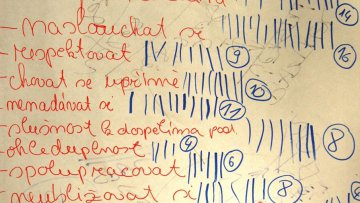 14
- naslouchat se 16
- respektovat 9
- chovat se upřímně 10
- nenadávat se 11
- slušnost k dospělým a pod 8
- ohleduplnost 4
- spolupracovat 6
- neubližovat si 8